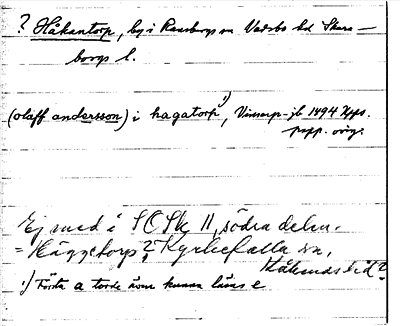 ? Håkantorp, by i Ransbergs sn Vadsbo hd Skara-
borgs l.
(olaff andersson) i hagatorp 1), Vinsarp-jb 1494 Upps.
papp. orig.
Ej med i SOSk 11, södra delen.
= Häggetorp?, Kyrkefalla sn,
Kåkinds hd?
1) Första a torde även kunna läsas e